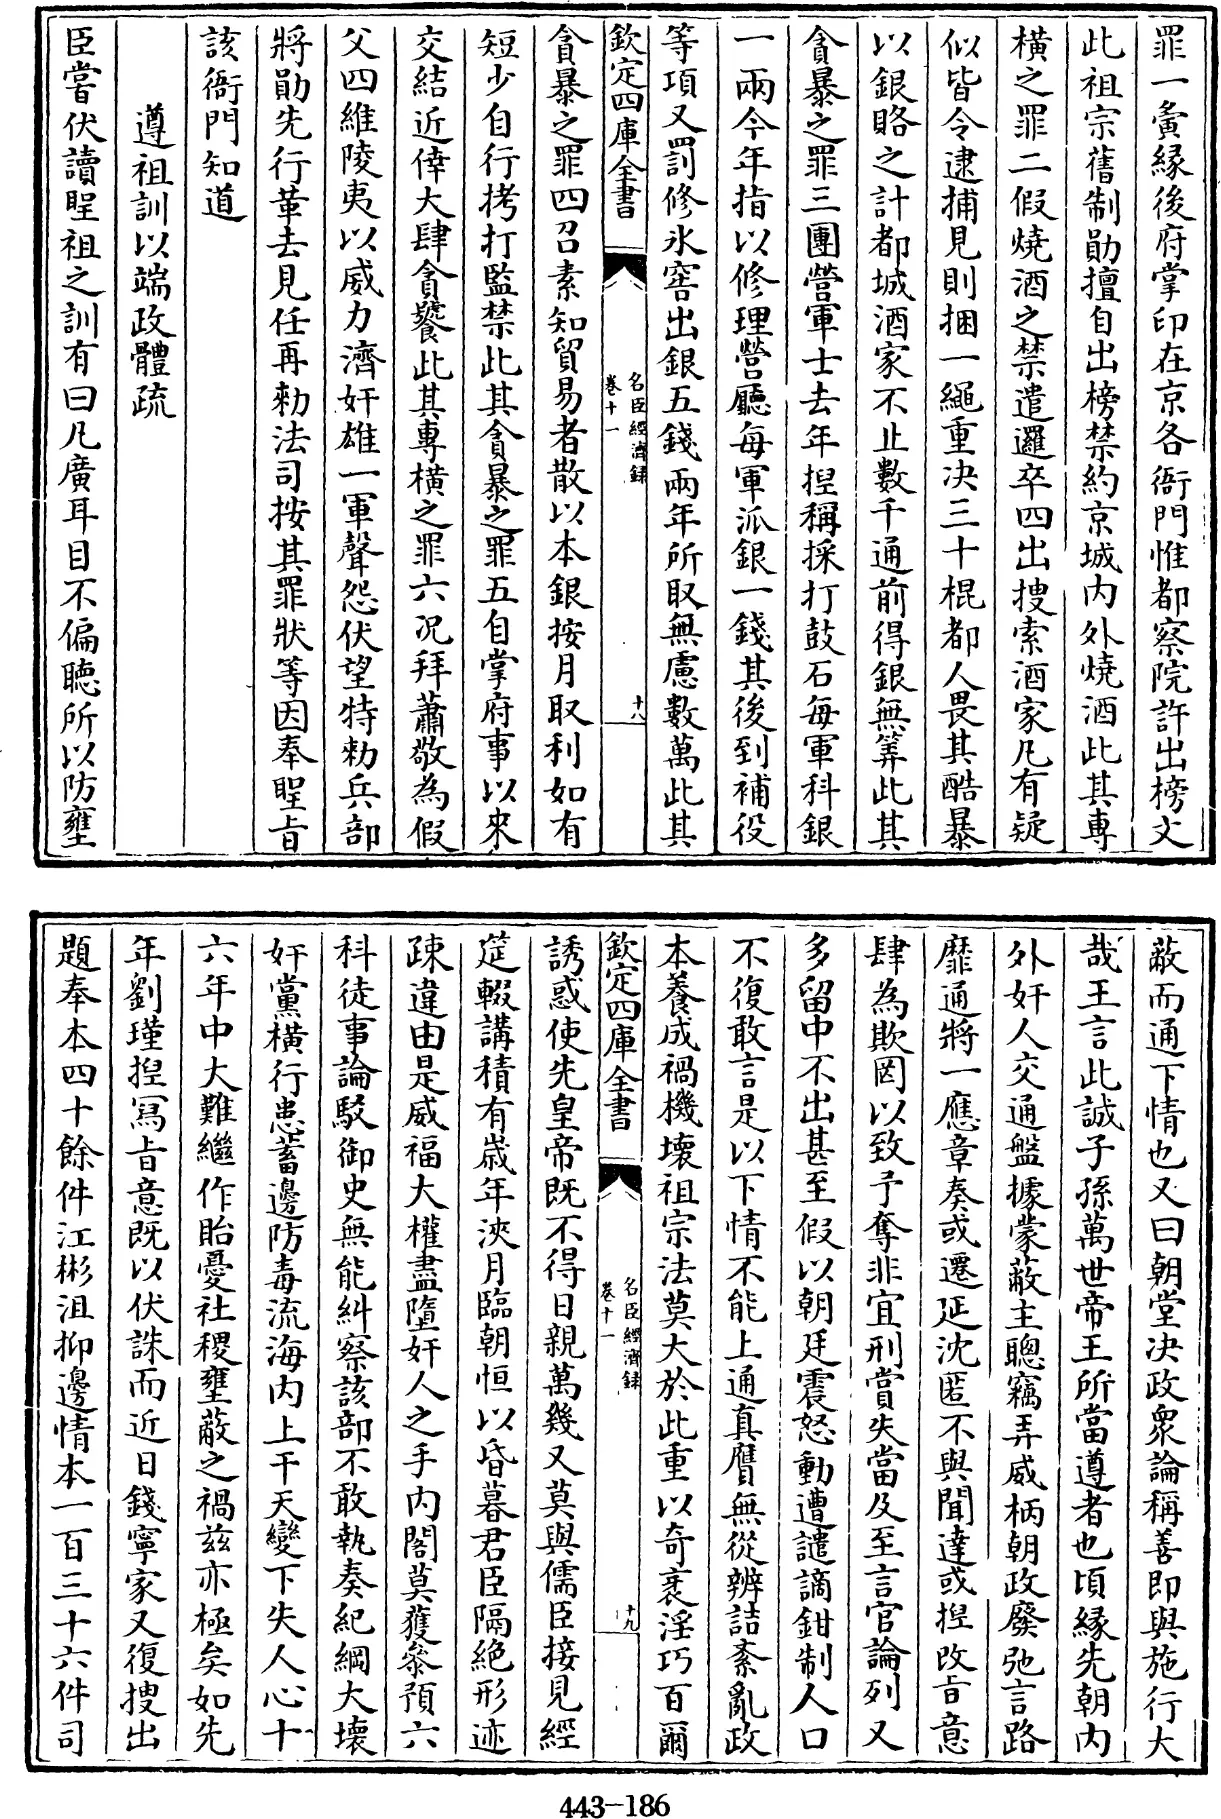 罪一夤縁後府掌印在京各衙門惟都察院許出榜文
此祖宗舊制勛擅自出榜禁約京城内外燒酒此其專
横之罪二假燒酒之禁遣邏卒四出搜索酒家凡有疑
似皆令逮捕見則捆一繩重决三十棍都人畏其酷暴
以銀賂之計都城酒家不止數千通前得銀無筭此其
貪暴之罪三團營軍士去年揑稱採打鼓石每軍科銀
一兩今年指以修理營廳每軍派銀一錢其後到補役
等項又罰修氷窖出銀五錢兩年所取無慮數萬此其
欽定四庫全書
名臣經濟録
卷十一
十八
貪暴之罪四召素知貿易者散以本銀按月取利如有
短少自行拷打監禁此其貪暴之罪五自掌府事以來
交結近倖大肆貪饕此其專横之罪六况拜蕭敬為假
父四維陵夷以威力濟奸雄一軍聲怨伏望特勑兵部
將勛先行革去見任再勑法司按其罪狀等因奉聖旨
該衙門知道
遵祖訓以端政體疏
臣嘗伏讀聖祖之訓有曰凡廣耳目不偏聽所以防壅
蔽而通下情也又曰朝堂决政衆論稱善即與施行大
哉王言此誠子孫萬世帝王所當遵者也頃縁先朝内
外奸人交通盤據蒙蔽主聰竊弄威柄朝政廢弛言路
靡通將一應章奏或遷延沈匿不與聞達或揑改旨意
肆為欺罔以致予奪非宜刑賞失當及至言官論列又
多留中不出甚至假以朝廷震怒動遭譴謫鉗制人口
不復敢言是以下情不能上通真贋無從辨詰紊亂政
本養成禍機壞祖宗法莫大於此重以奇衺淫巧百爾
欽定四庫全書
名臣經濟録
卷十一
十九
誘惑使先皇帝既不得日親萬幾又莫與儒臣接見經
筵輟講積有歲年浹月臨朝恒以昏暮君臣隔絶形迹
疎違由是威福大權盡墮奸人之手内閣莫獲參預六
科徒事論駁御史無能糾察該部不敢執奏紀綱大壞
奸黨横行患蓄邊防毒流海内上干天變下失人心十
六年中大難繼作貽憂社稷壅蔽之禍兹亦極矣如先
年劉瑾揑寫旨意既以伏誅而近日錢寧家又復搜出
題奉本四十餘件江彬沮抑邊情本一百三十六件司
443-186